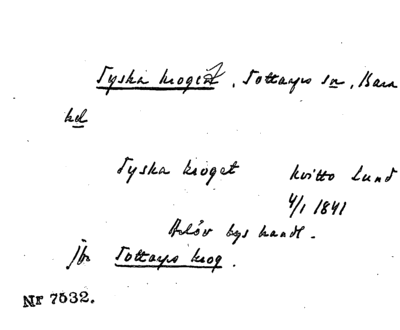 Tyska kroget, Tottarps sn, Bara
hd
Tyska kroget kvitto Lund
4/1 1841
Arlöv bys handl.
jfr Tottarps krog.
NF 7532.